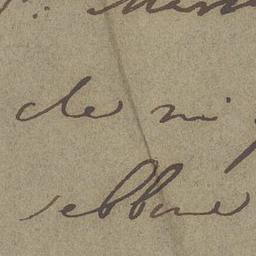 che mi
sebbene